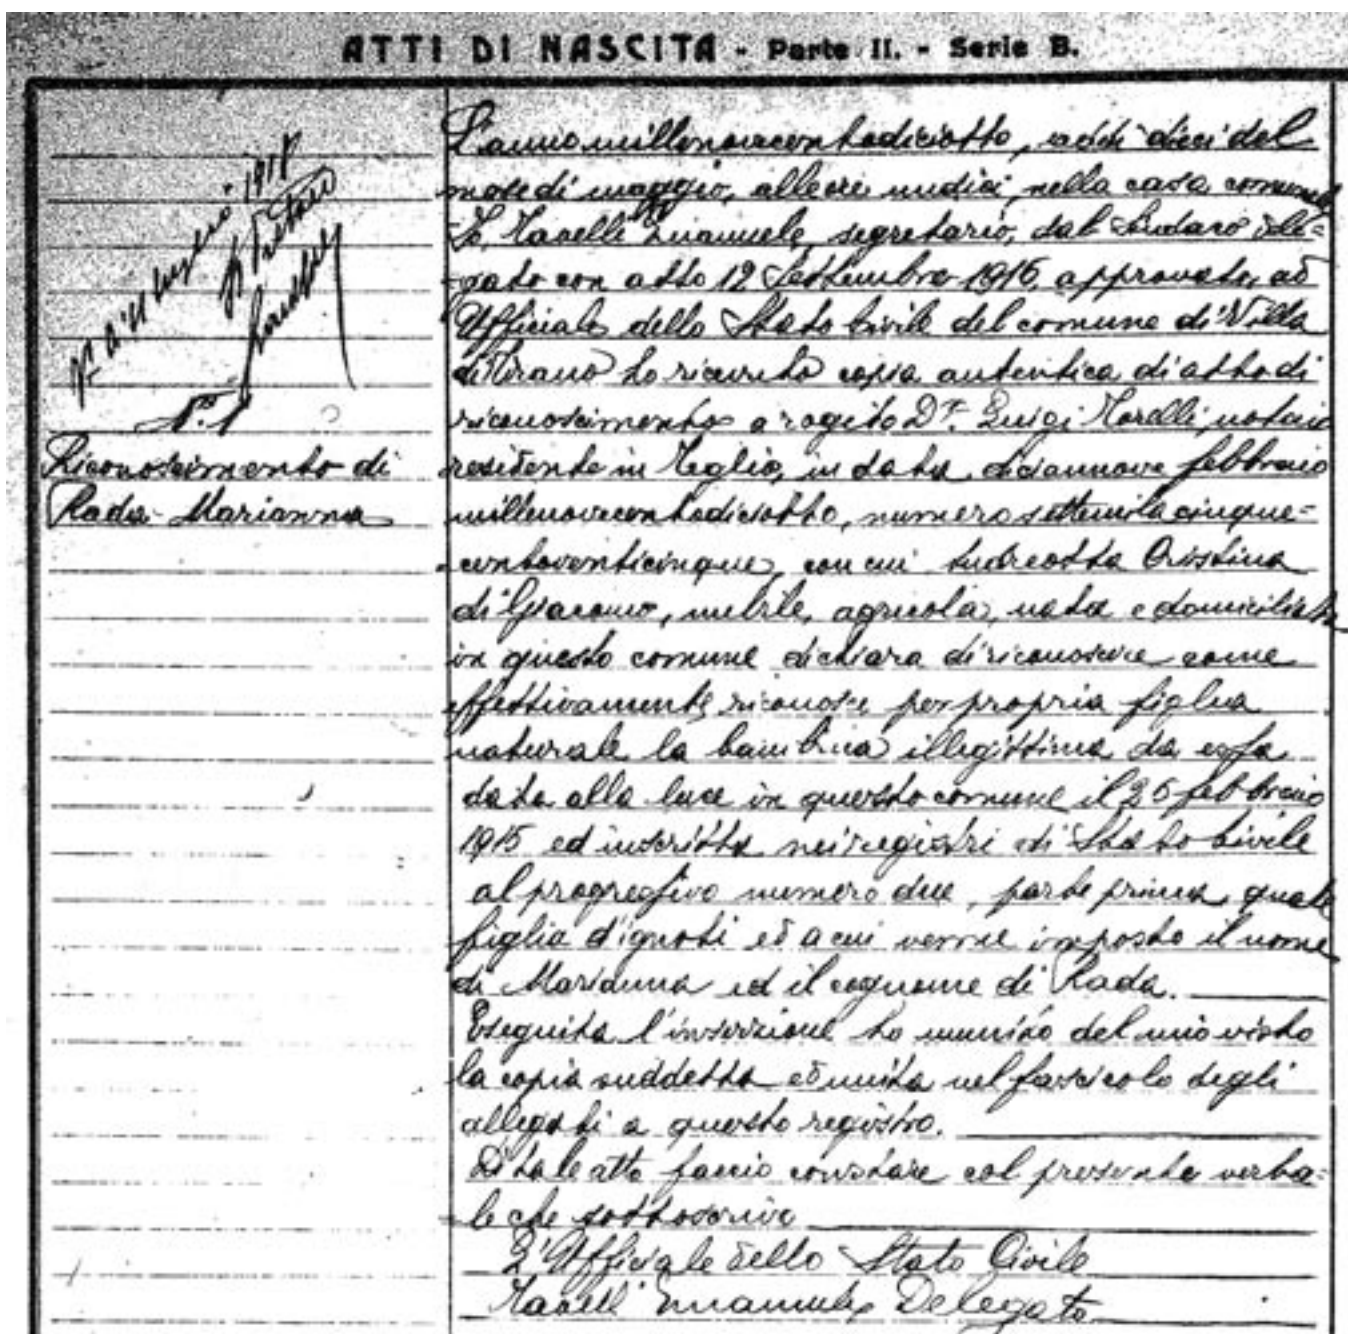 ATTI DI NASCITA - Parte II. - Serie B.
1918
N.° 1
Riconoscimento di
Rada Marianna
L'anno millenovecentodiciotto, addì dieci del
mese di maggio, alle ore undici, nella casa comunale
Io, Emanuele, segretario, dal Sindaco dele=
=gato con atto 12 Settembre 1916, approvato, ad
Ufficiale dello Stato Civile del comune di Villa
di Tirano ho ricevuto copia autentica di atto di
riconoscimento a rogito D.r Luigi Morelli, notaio
residente in Teglio, in data diciannove febbraio
millenovecentodiciotto, numero settemilacinque=
=centoventicinque, con cui Andreotta Cristina
di Giacomo, nubile, agricola, nata e domiciliata
in questo comune dichiara di riconoscere come
effettivamente riconosce per propria figlia
naturale la bambina illegittima da essa
data alla luce in questo comune il 25 febbraio
1915 ed inscritta nei registri di Stato Civile
al progressivo numero due, parte prima, quale
figlia d'ignoti ed a cui venne imposto il nome
di Marianna ed il cognome di Rada.
Eseguita l'inserzione ho munito del mio visto
la copia suddetta ed unita nel fascicolo degli
allegati a questo registro.
Di tale atto faccio constare col presente verba=
=le che sottoscrivo
L'Ufficiale dello Stato Civile
Emanuele Delegato